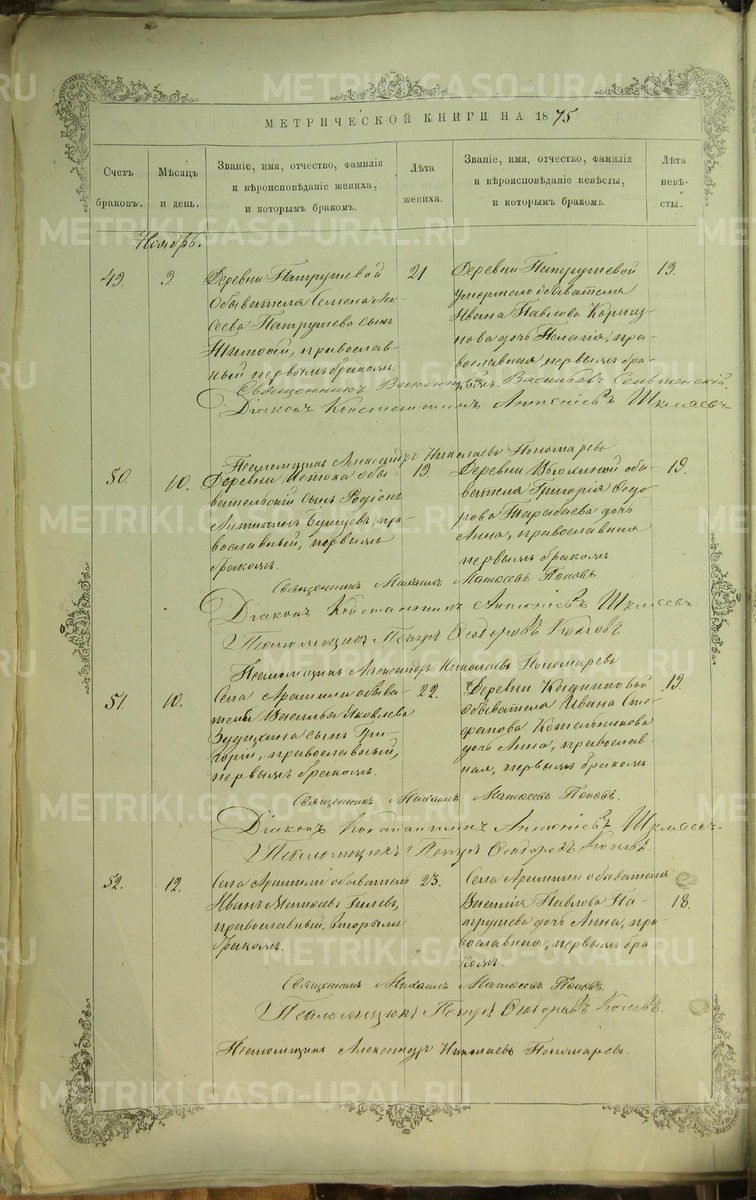 МЕТРИЧЕСКОЙ КНИГИ НА 1875
Счетъ браковъ.
Мѣсяцъ и день.
Званіе, имя, отчество, фамилія
и вѣроисповѣданіе жениха,
и которымъ бракомъ.
Лѣта жениха.
Званіе, имя, отчество, фамилія
и вѣроисповѣданіе невѣсты,
и которымъ бракомъ.
Лѣта невѣсты.
Ноябрь.
49. 9
Деревни Патрушевой
обывателя Семена Алек
сѣева Патрушева сынъ
православ-
ный первымъ бракомъ
21
Деревни Патрушевой
умершаго обывателя
Ивана Павлова Кормиц
кова дочь Пелагія, пра-
вославная, первымъ бра-
19.
Священникъ Васильевъ
Діаконъ Константинъ Антоніевъ Шкляевъ
Псаломщикъ Александръ Николаевъ Пономаревъ
50. 10.
Деревни Истока обы-
вательскій сынъ Родіонъ
пра-
вославный, первымъ
бракомъ.
19.
Деревни обы-
вателя Григорія Ѳедо
рова Тарабаева дочь
Анна, православная
первымъ бракомъ
19.
Священникъ Михаилъ Матѳеевъ Поповъ.
Діаконъ Константинъ Антоніевъ Шкляевъ
Псаломщикъ Петръ Ѳедоровъ
Псаломщикъ Александръ Николаевъ Пономаревъ
51. 10.
Села Арамили обыва-
теля Василья Яковлева
сынъ Гри-
горій, православный,
первымъ бракомъ.
22.
Деревни
обывателя Ивана Сте
фанова Котельникова
дочь Анна, православ-
ная, первымъ бракомъ
19.
Священникъ Михаилъ Матѳеевъ Поповъ.
Діаконъ Константинъ Антоніевъ Шкляевъ.
Псаломщикъ Петръ Ѳедоровъ
52. 12.
Села Арамили обыватель
Иванъ Матѳеевъ Гилевъ,
православный, вторымъ
бракомъ.
23.
Села Арамили обывателя
Василія Павлова Па-
трушева дочь Анна, пра-
вославная, первымъ бра
комъ.
18.
Священникъ Михаилъ Матѳеевъ Поповъ.
Псаломщикъ Петръ Ѳедоровъ
Псаломщикъ Александръ Николаевъ Пономаревъ.
METRIKI.GASO-URAL.RU